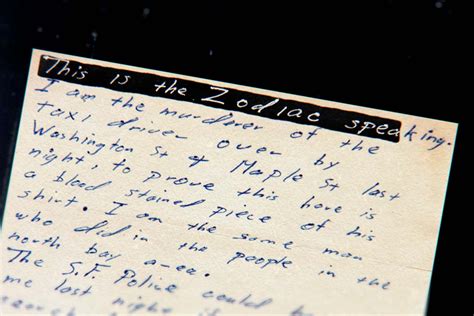 This is the Zodiac speaking.
I am the murderer of the
taxi driver over by
Washington St & Maple St last
night, to prove this here is
a blood stained piece of his
shirt. I am the same man
who did in the people in the
north bay area.
The S.F. Police could
me last night